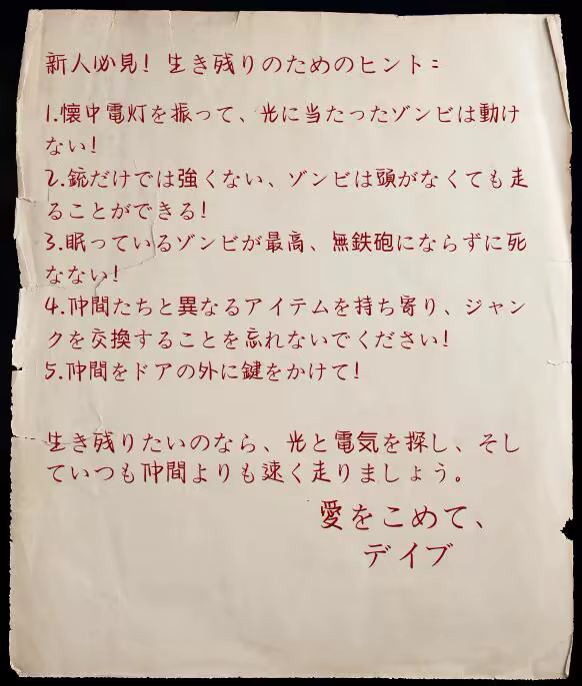 新人必見! 生き残りのためのヒント:
1.懐中電灯を振って、光に当たったゾンビは動け
ない!
2.銃だけでは強くない、ゾンビは頭がなくても走
ることができる!
3.眠っているゾンビが最高、無鉄砲にならずに死
なない!
4.仲間たちと異なるアイテムを持ち寄り、ジャン
クを交換することを忘れないでください!
5.仲間をドアの外に鍵をかけて!
生き残りたいのなら、光と電気を探し、そし
ていつも仲間よりも速く走りましょう。
愛をこめて、
デイブ